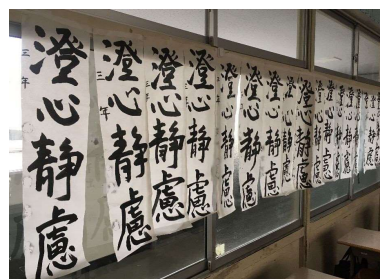 澄心静慮
三年
澄心静慮
三年
澄心静慮
澄心静慮
澄心静慮
澄心静慮
澄心静慮
澄心静慮
澄心静慮
澄心静慮
澄心静慮
澄心静慮
澄心静慮
澄心静慮